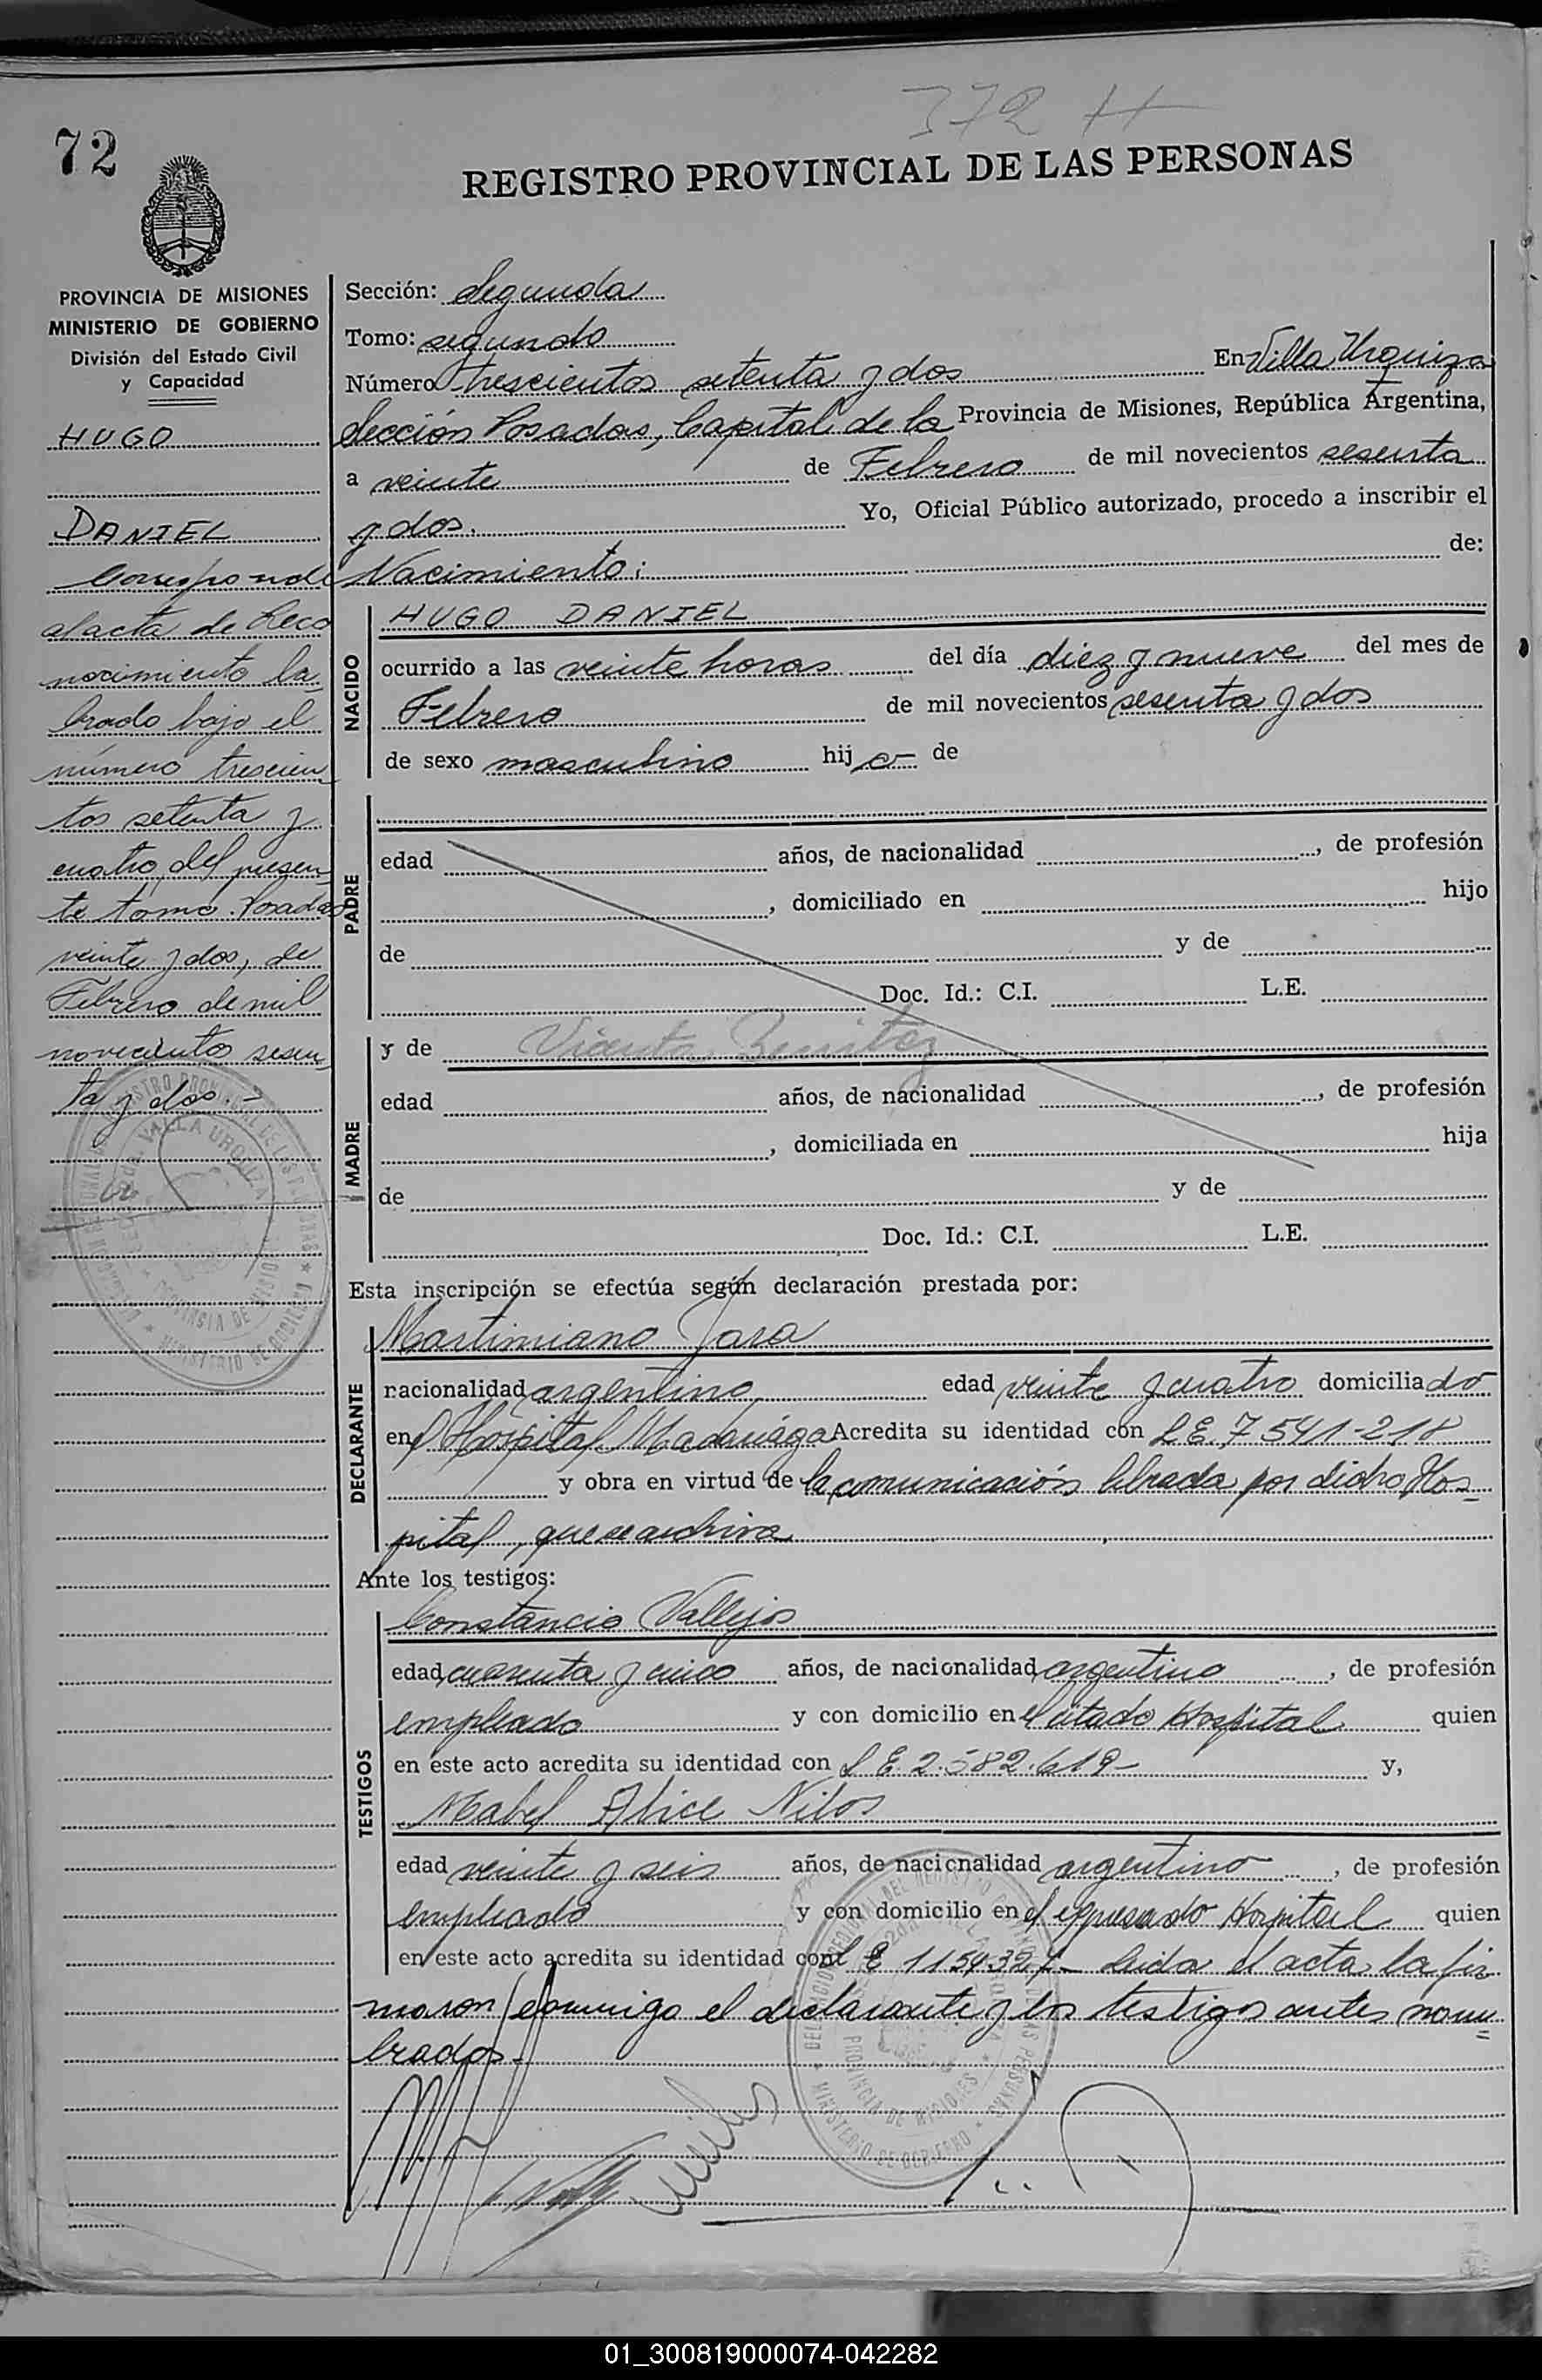 372 H
72
REGISTRO PROVINCIAL DE LAS PERSONAS
PROVINCIA DE MISIONES
MINISTERIO DE GOBIERNO
División del Estado Civil
y Capacidad
HUGO
DANIEL
Corresponde
al acta de Reco
nocimiento la_
brado bajo el
número trescien_
tos setenta y
cuatro, del presen_
te tomo. Posadas
veinte y dos, de
Febrero de mil
novecientos sesen_
ta y dos.-
Sección: Segunda
Tomo: segundo
Número trescientos setenta y dos En Villa Urquiza
Sección Posadas, Capital de la Provincia de Misiones, República Argentina,
a veinte de Febrero de mil novecientos sesenta
y dos. Yo, Oficial Público autorizado, procedo a inscribir el
Nacimiento: de:
NACIDO
HUGO DANIEL
ocurrido a las veinte horas del día diez y nueve del mes de
Febrero de mil novecientos sesenta y dos
de sexo masculino hij o- de
PADRE
edad años, de nacionalidad , de profesión
, domiciliado en hijo
de y de
Doc. Id.: C.I. L.E.
MADRE
y de Vicenta Benitez
edad años, de nacionalidad , de profesión
, domiciliada en hija
de y de
Doc. Id.: C.I. L.E.
Esta inscripción se efectúa según declaración prestada por:
DECLARANTE
Martimiano Jara
nacionalidad argentino edad veinte y cuatro domiciliado
en el Hospital Madariaga Acredita su identidad con L.E. 7541-218
y obra en virtud de la comunicación librada por dicho Hos_
pital, que se archiva
Ante los testigos:
TESTIGOS
Constancio Vallejos
edad cuarenta y cinco años, de nacionalidad argentino , de profesión
empleado y con domicilio en el citado Hospital quien
en este acto acredita su identidad con L E. 2.582.619- y,
Mabel Alice Nilos
edad veinte y seis años, de nacionalidad argentino , de profesión
empleado y con domicilio en el expresado Hospital quien
en este acto acredita su identidad con L E Leida el acta la fir
maron conmigo el declarante y los testigos antes nom_
brados.-
01_300819000074-042282